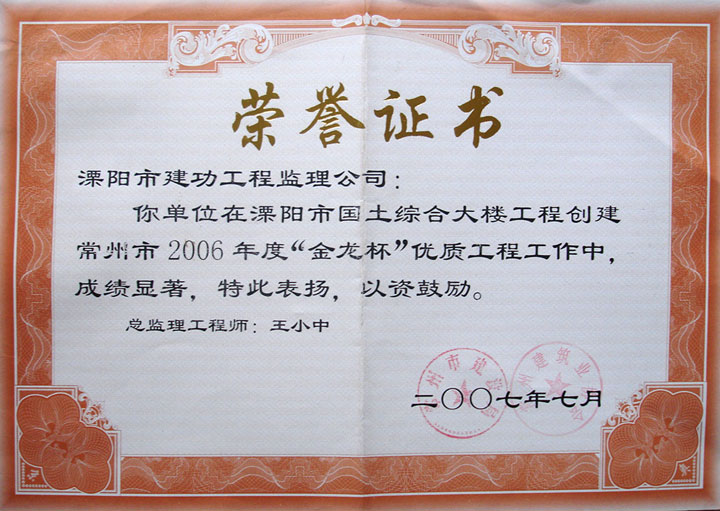 荣誉证书
溧阳市建功工程监理公司：
你单位在溧阳市国土综合大楼工程创建
常州市2006年度“金龙杯”优质工程工作中，
成绩显著，特此表扬，以资鼓励。
总监理工程师：王小中
二〇〇七年七月